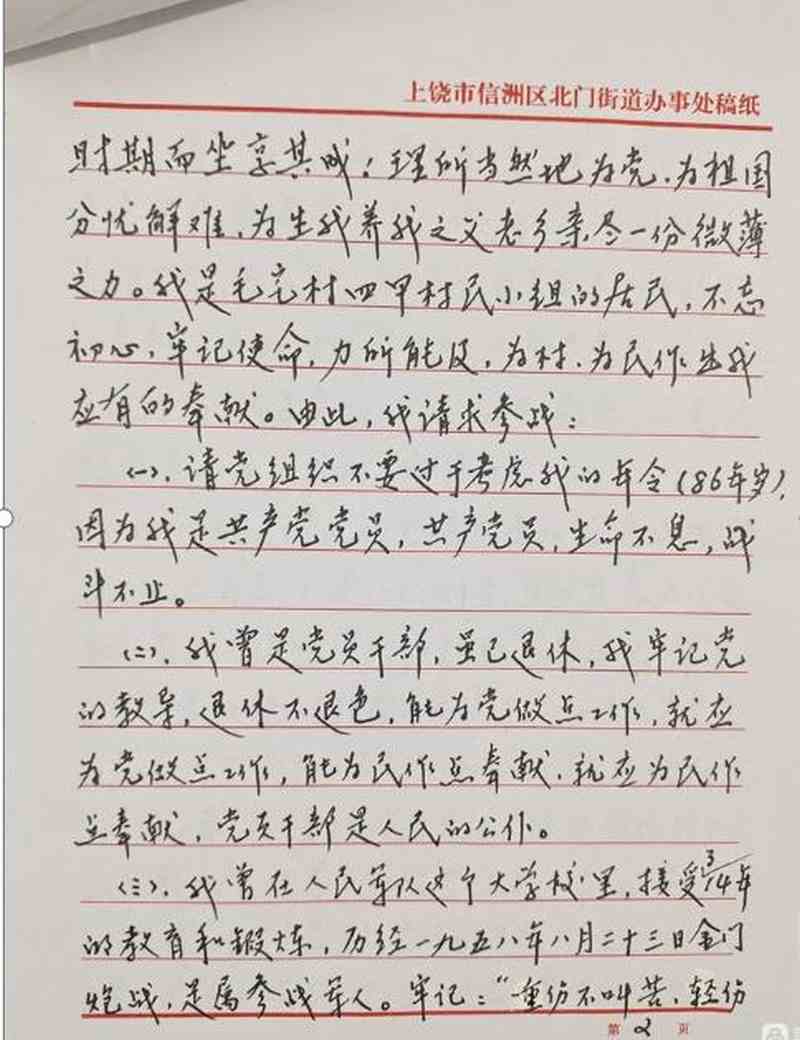 上饶市信洲区北门街道办事处稿纸
时期而坐享其成！理所当然地为党、为祖国
分忧解难，为生我养我之父老乡亲尽一份微薄
之力。我是毛宅村四甲村民小组的居民，不忘
初心，牢记使命，力所能及，为村、为民作出我
应有的奉献。由此，我请求参战：
（一）、请党组织不要过于考虑我的年令（86年岁），
因为我是共产党党员，共产党员，生命不息，战
斗不止。
（二）、我曾是党员干部，虽已退休，我牢记党
的教导，退休不退色，能为党做点工作，就应
为党做点工作，能为民作点奉献，就应为民作
点奉献，党员干部是人民的公仆。
（三）、我曾在人民军队这个大学校里，接受3/14年
的教育和锻炼，历经一九五八年八月二十三日金门
炮战，是属参战军人。牢记：“重伤不叫苦，轻伤
第 2 页